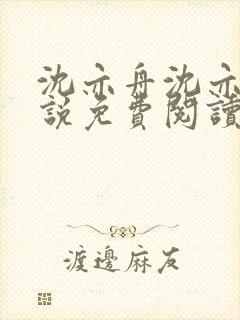 沈亦舟沈亦
說免費閱讀
渡邊麻友